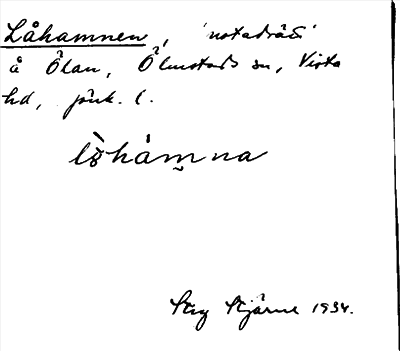 Låhamnen, 'notadräkt'
å Ölan, Ölmstads sn, Vista
hd, jönk. l.
lò̀håmna
Stig Stjärne 1934.